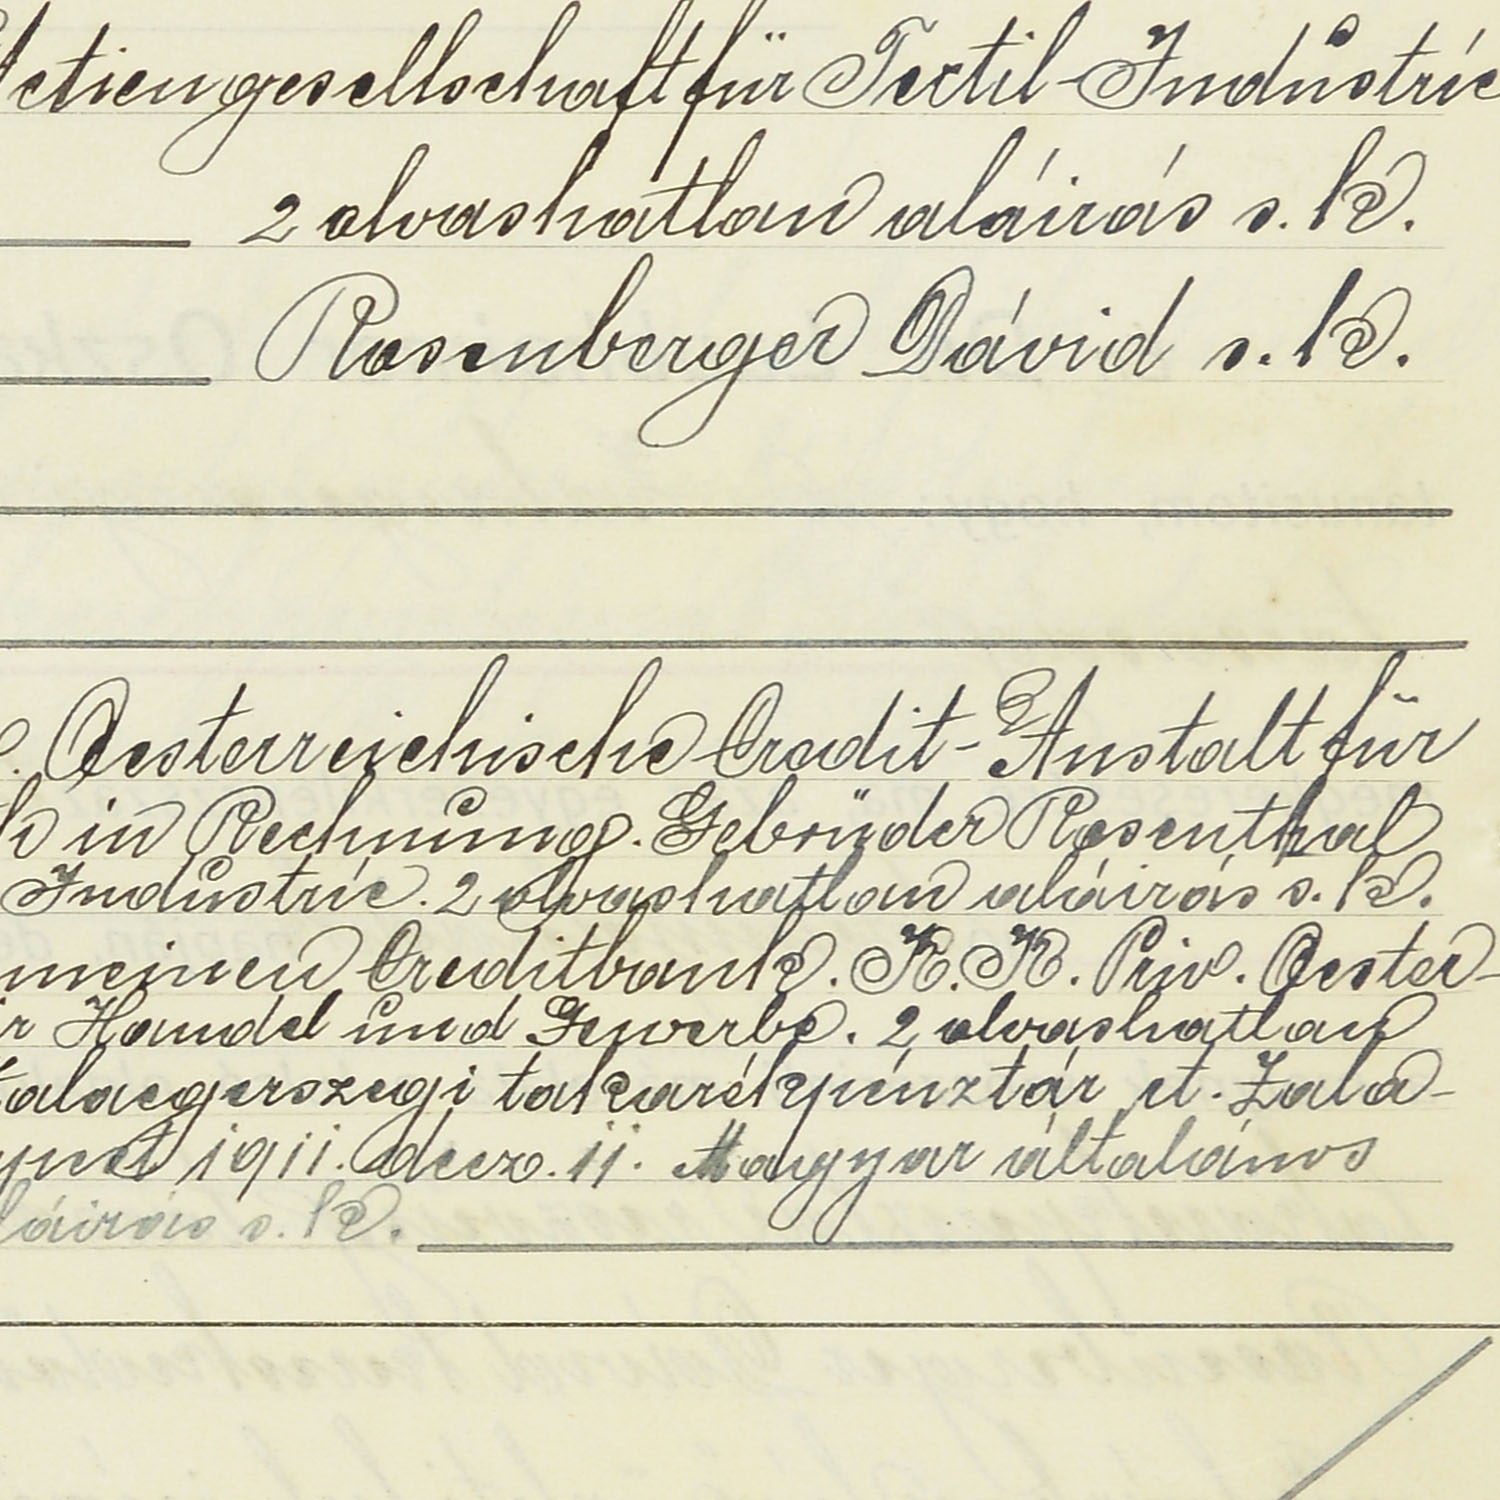 Actiengesellschaft für Textil-Industrie
2 olvashatlan aláirás s. k.
Rosenberger Dávid s. k.
Oesterreichische Credit-Anstalt für
in Rechnung. Gebrüder Rosenthal
Industrie. 2 olvashatlan aláirás s. k.
meinen Creditbank. K. K. Priv. Oester-
Handel und Gewerbe. 2 olvashatlan
Zalaegerszegi takarékpénztár rt. Zala-
1911. decz. 11. Magyar általános
láirás s. k.